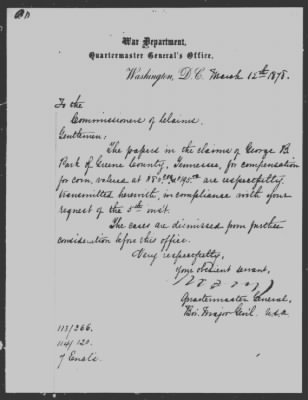 War Department,
Quartermaster General's Office,
Washington, D.C. March 12th 1878.
To the
Commissioners of Claims.
Gentlemen:
The papers in the claims of George B.
Park of Greene County, Tennessee, for compensation
for corn, valued at are respectfully
transmitted herewith, in compliance with your
request of the 5th inst.
The cases are dismissed from further
consideration before this office.
Very respectfully,
Your obedient servant,
Quartermaster General,
Bvt. Major Genl. U.S.A
113/266.
114/120.
7 Encls.